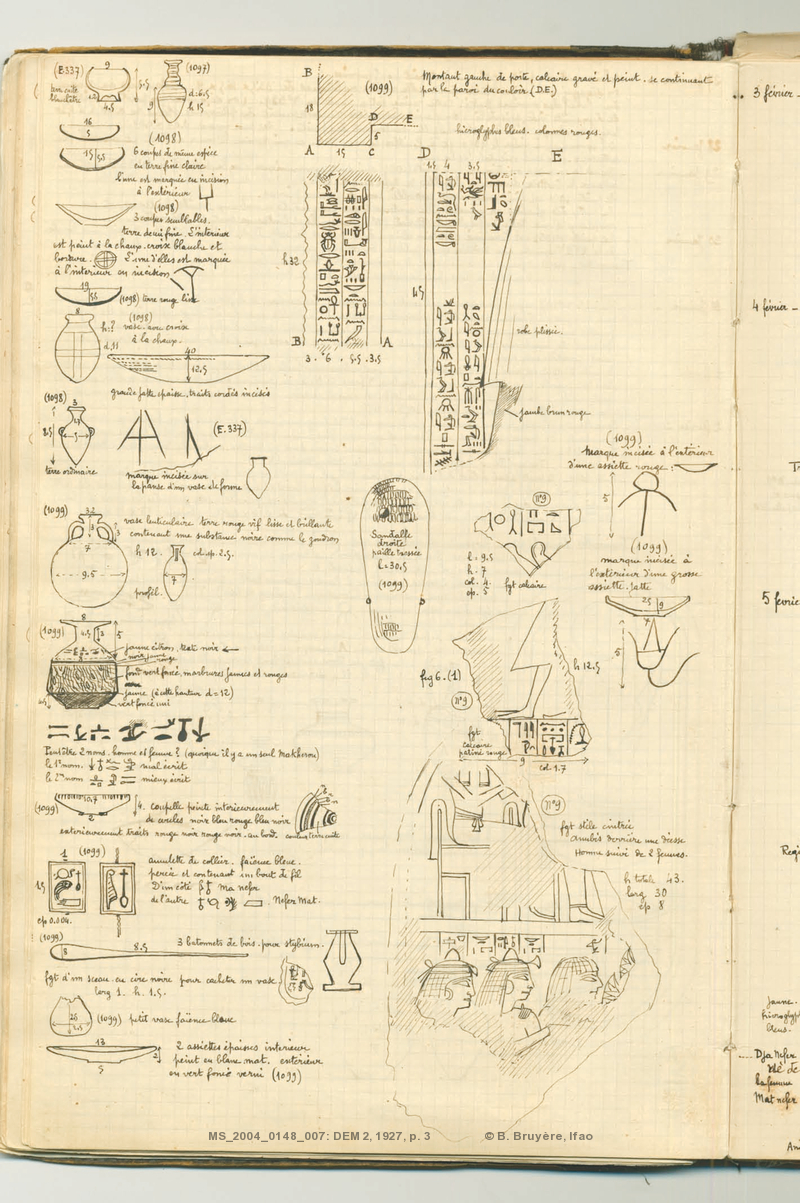 (E.337)
9
5.5
4.5
(1097)
d: 6.5
h 15
9
16
5
(1098)
15
5.5
6 coupes de même espèce
en terre fine claire
l'une est marquée en incision
à l'extérieur
(1098)
3 coupes semblables.
terre demi fine. L'intérieur
est peint à la chaux. croix blanche et
bordure. L'une d'elles est marquée
à l'intérieur en incision
19
5.5
(1098) terre rouge lisse
8
h:?
d. 11
(1098)
vase avec croix
à la chaux.
40
12.5
grande jatte épaisse, traits cordés incisés
(1098)
3
terre ordinaire
(E.337)
marque incisée sur
la panse d'un vase de forme
(1099)
3.2
7
9.5
vase lenticulaire terre rouge vif lisse et brillante
contenant une substance noire comme le goudron
h 12.
col. op. 2.5.
profil.
7
(1099)
8
4.5
5
jaune citron, trait noir
fond vert foncé, marbrures jaunes et rouges
jaune (à cette hauteur d = 12)
vert foncé uni
Peut être 2 noms. homme et femme? (quoique il y a un seul Makherou)
le 1er nom. mal écrit
le 2me nom mieux écrit
(1099)
10.7
2
4.
coupelle peinte intérieurement
de cercles noir bleu rouge bleu noir
extérieurement traits rouge noir rouge noir. au bord.
couleur terre cuite
1
(1099)
1.5
ep 0.004.
amulette de collier. faïence bleue.
percée et contenant un bout de fil
D'un côté ma nefer
de l'autre Nefer Mat.
(1099)
8
8.5
3 batonnets de bois. pour stybium.
fgt d'un sceau en cire noire pour cacheter un vase
larg 1. h. 1.5.
26
2.5
(1099) petit vase faïence blanc
13
2
5
2 assiettes épaisses intérieur
peint en blanc mat. extérieur
en vert foncé verni (1099)
B
18
(1099)
D
E
5
A
15
C
Montant gauche de porte, calcaire gravé et peint. se continuant
par la paroi du couloir (D.E.)
hiéroglyphes bleus. colonnes rouges.
h 32
B
A
3. 6. 5.5. 3.5
D
1.5
4
3.5
E
robe plissée.
jambe brun rouge
(1099)
Marque incisée à l'extérieur
d'une assiette rouge:
5
(1099)
marque incisée à
l'extérieur d'une grosse
assiette. jatte
25
9
7
5
Sandalle
droite
paille tressée
L=30,5
(1099)
n°9
l = 9.5
h. 7
col. 4.
ep. 5
fgt calcaire
fig 6. (1)
n°9
h 12.5
fgt
calcaire
patiné rouge
9
col. 1.7
n°9
fgt stèle cintrée
Anubis derrière une déesse
Homme suivi de 2 femmes.
h totale 43.
larg 30
ep 8
3 février -
4 février -
5 févrie
jaune.
hiéroglyp
bleus.
Dja Nefer
la femme
Mat nefer
MS_2004_0148_007: DEM 2, 1927, p. 3
© B. Bruyère, Ifao